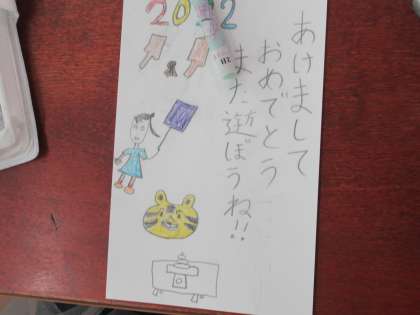 2022
あけまして
おめでとう
また遊ぼうね!!